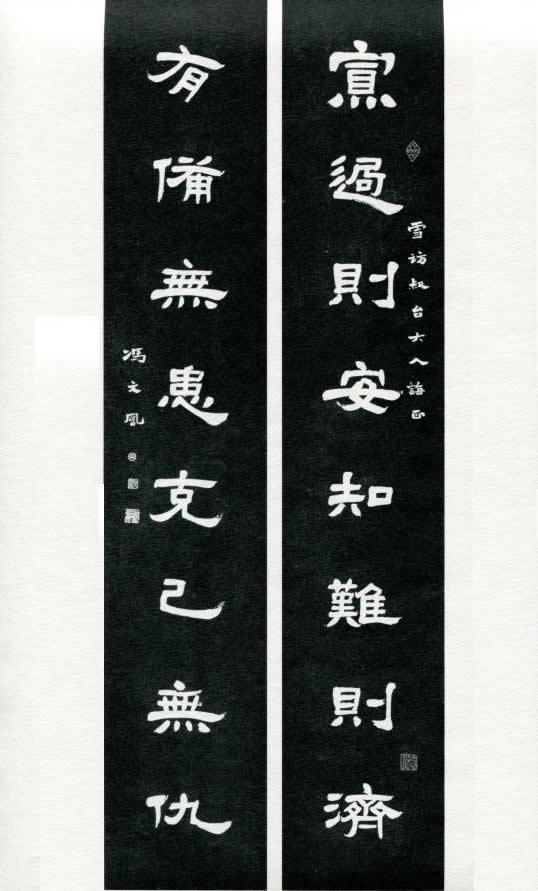 寡過則安知難則濟
雪访叔台大人誨正
有備無患克己無仇
馮文鳳